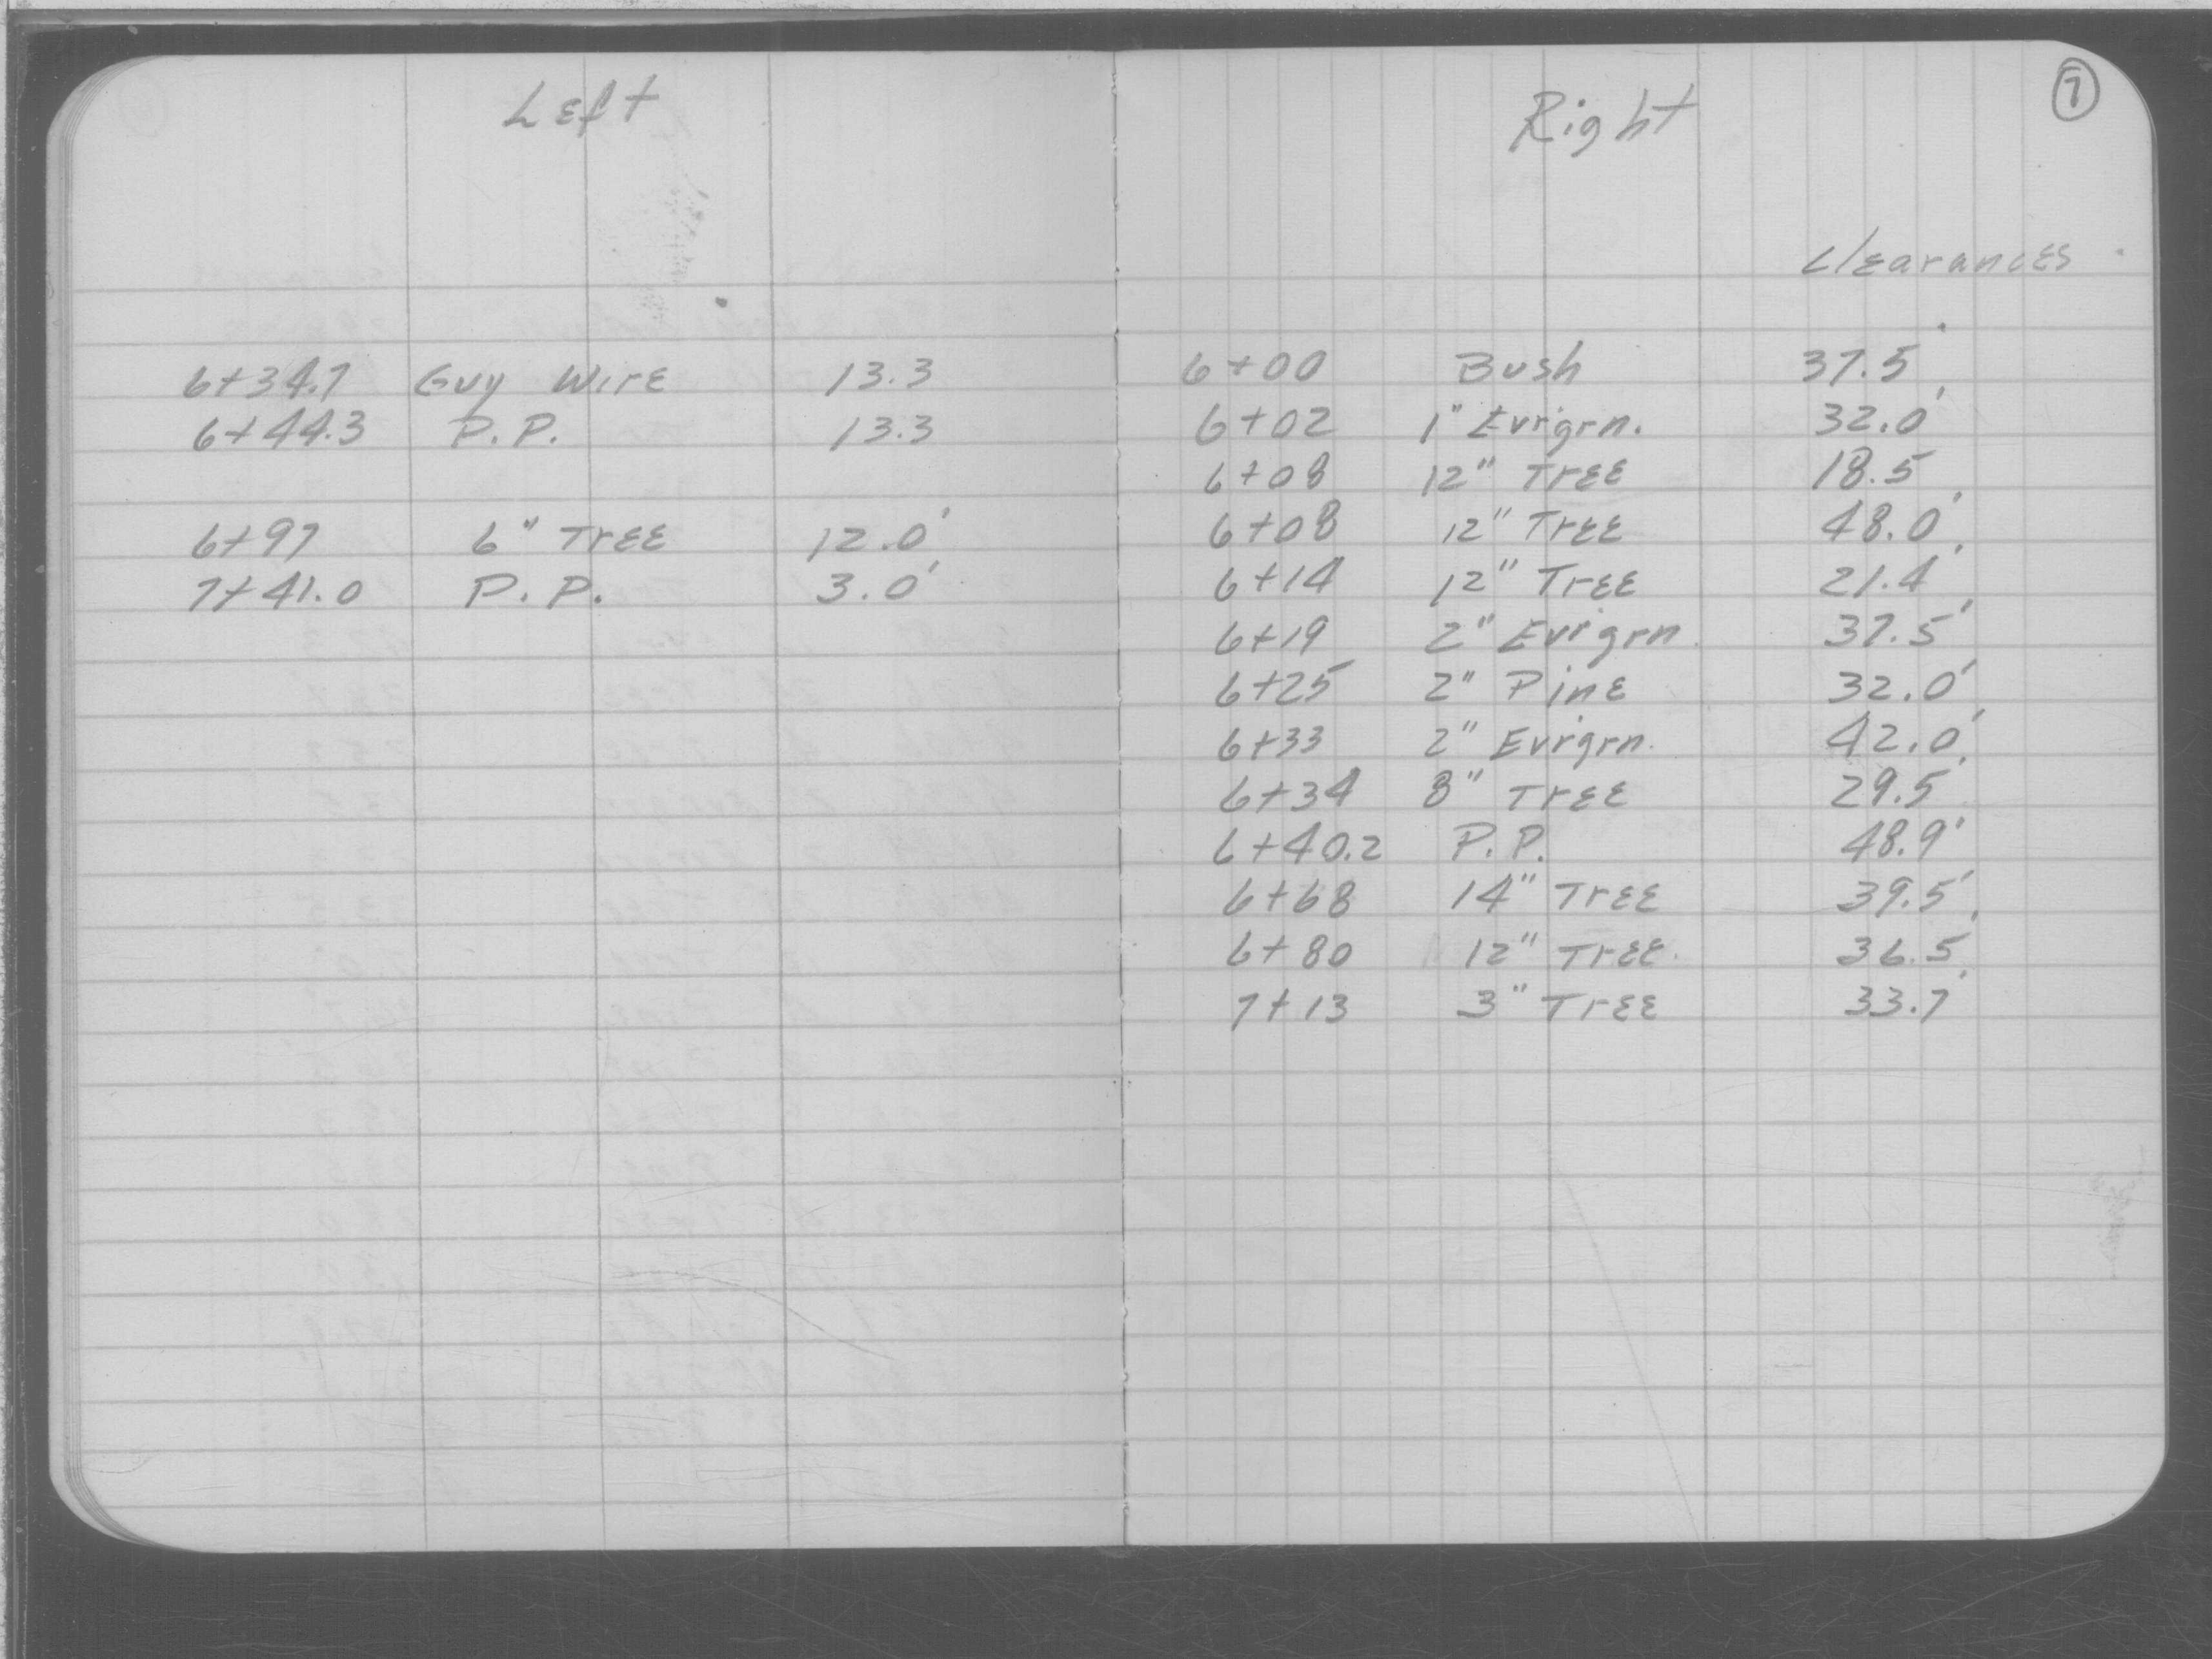 Left
6+34.7 Guy Wire 13.3
6+44.3 P.P. 13.3
6+97 6" Tree 12.0'
7+41.0 P.P. 3.0'
7
Right
Clearances
6+00 Bush 37.5'
6+02 1" Evrgrn. 32.0'
6+08 12" Tree 18.5'
6+08 12" Tree 48.0'
6+14 12" Tree 21.4'
6+19 2" Evrgrn. 37.5'
6+25 2" Pine 32.0'
6+33 2" Evrgrn. 42.0'
6+34 8" Tree 29.5'
6+40.2 P.P. 48.9'
6+68 14" Tree 39.5'
6+80 12" Tree. 36.5'
7+13 3" Tree 33.7'